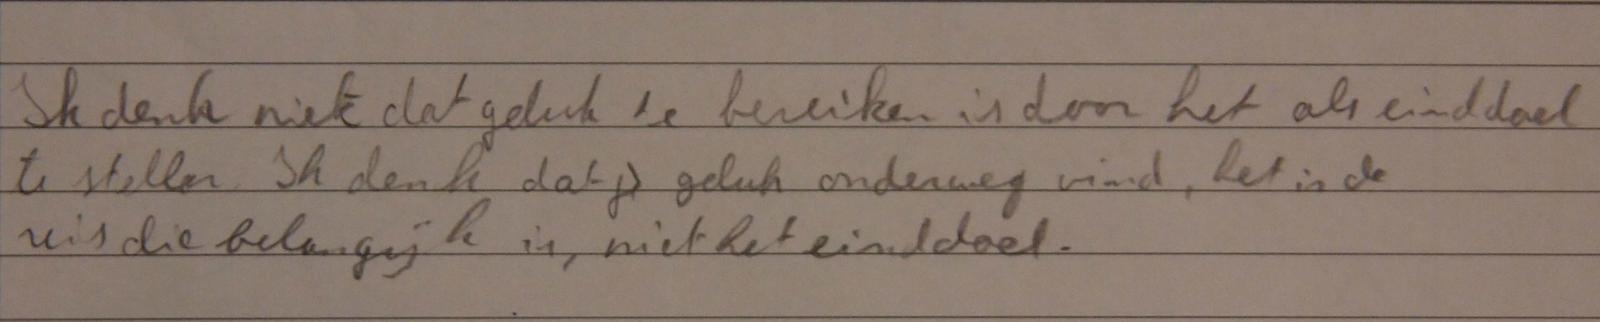 Ik denk niet dat geluk te bereiken is door het als einddoel
te stellen. Ik denk dat je geluk onderweg vind, het is de
reis die belangrijk is, niet het einddoel.